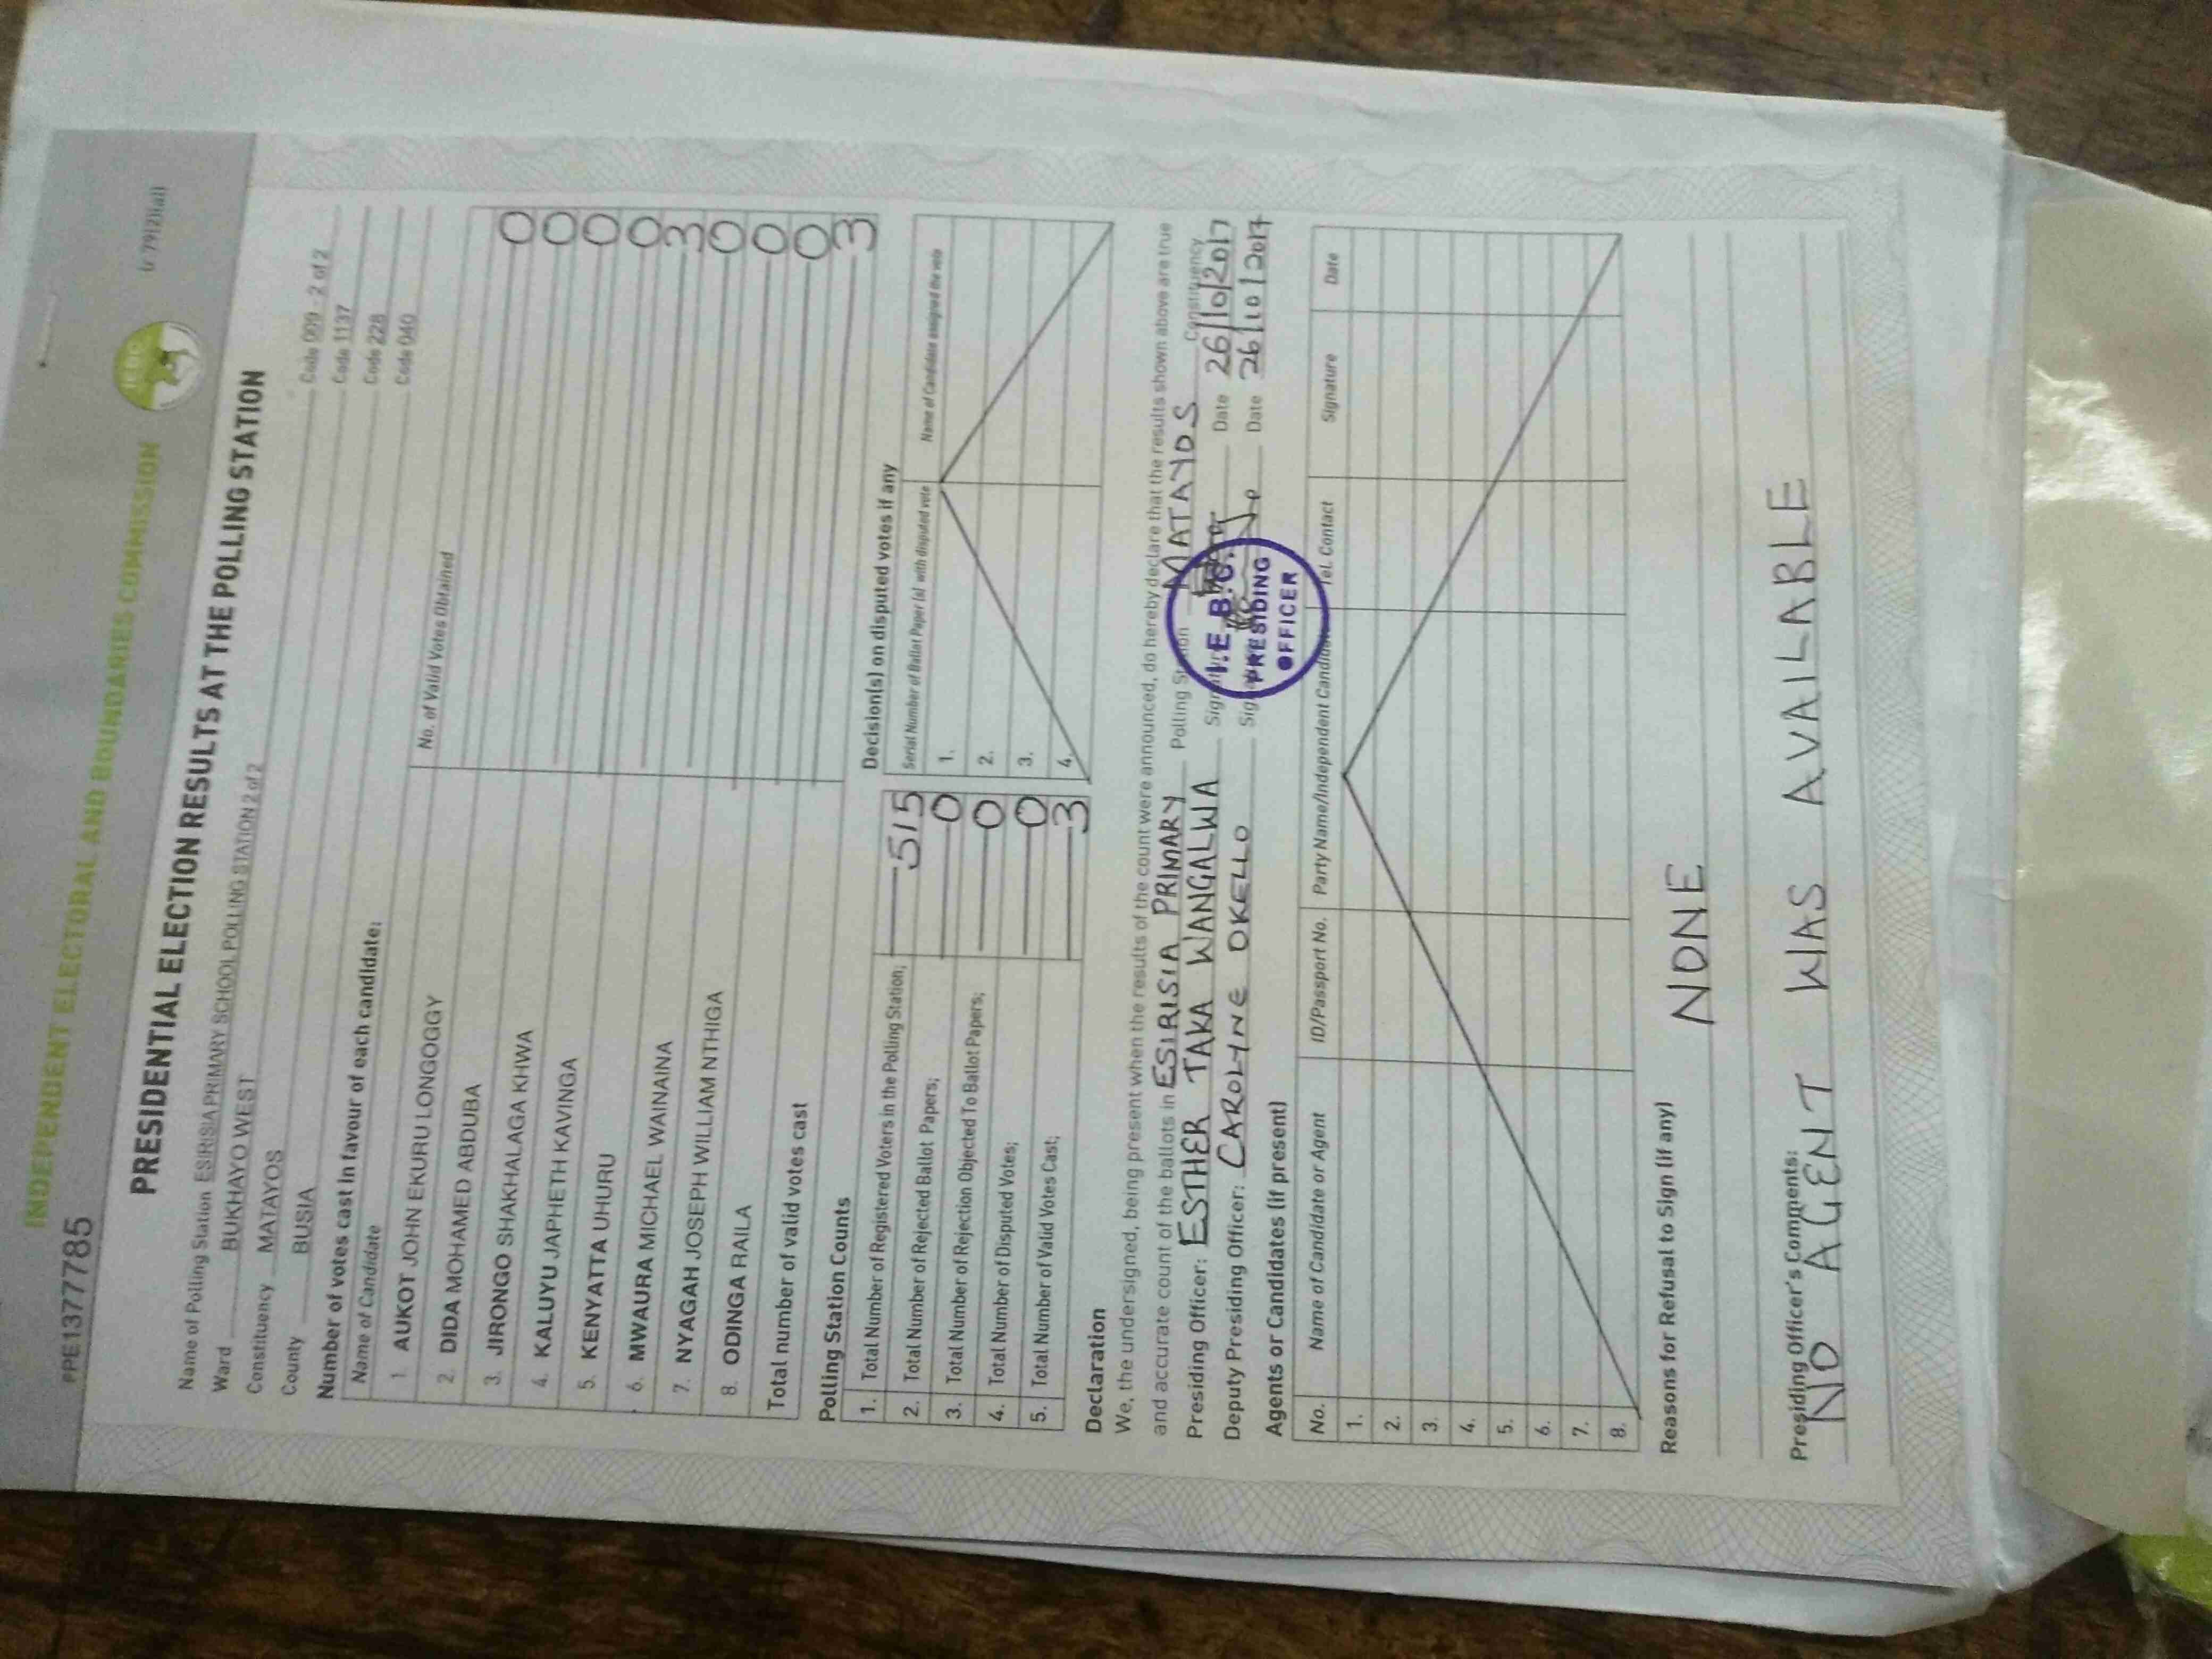 INDEPENDENT ELECTORAL AND BOUNDARIES COMMISSION
PPE1377785
IEBC
PRESIDENTIAL ELECTION RESULTS AT THE POLLING STATION
Name of Polling Station ESIRISIA PRIMARY SCHOOL POLLING STATION 2 of 2 Code 009 - 2 of 2
Ward BUKHAYO WEST Code 1137
Constituency MATAYOS Code 228
County BUSIA Code 040
Number of votes cast in favour of each candidate:
Name of Candidate No. of Valid Votes Obtained
1. AUKOT JOHN EKURU LONGOGGY 0
2. DIDA MOHAMED ABDUBA 0
3. JIRONGO SHAKHALAGA KHWA 0
4. KALUYU JAPHETH KAVINGA 0
5. KENYATTA UHURU 3
6. MWAURA MICHAEL WAINAINA 0
7. NYAGAH JOSEPH WILLIAM NTHIGA 0
8. ODINGA RAILA 0
Total number of valid votes cast 3
Polling Station Counts
1. Total Number of Registered Voters in the Polling Station; 515
2. Total Number of Rejected Ballot Papers; 0
3. Total Number of Rejection Objected To Ballot Papers; 0
4. Total Number of Disputed Votes; 0
5. Total Number of Valid Votes Cast; 3
Decision(s) on disputed votes if any
Serial Number of Ballot Paper (s) with disputed vote Name of Candidate assigned the vote
1.
2.
3.
4.
Declaration
We, the undersigned, being present when the results of the count were announced, do hereby declare that the results shown above are true
and accurate count of the ballots in ESIRISIA PRIMARY Polling Station MATAYOS Constituency
Presiding Officer: ESTHER TAKA WANGALWA Signature Date 26/10/2017
Deputy Presiding Officer: CAROLYNE OKELLO Date 26/10/2017
I.E.B.C.
PRESIDING
OFFICER
Agents or Candidates (if present)
No. Name of Candidate or Agent ID/Passport No. Party Name/Independent Candidate Tel. Contact Signature Date
1.
2.
3.
4.
5.
6.
7.
8.
Reasons for Refusal to Sign (if any)
NONE
Presiding Officer's Comments:
NO AGENT WAS AVAILABLE